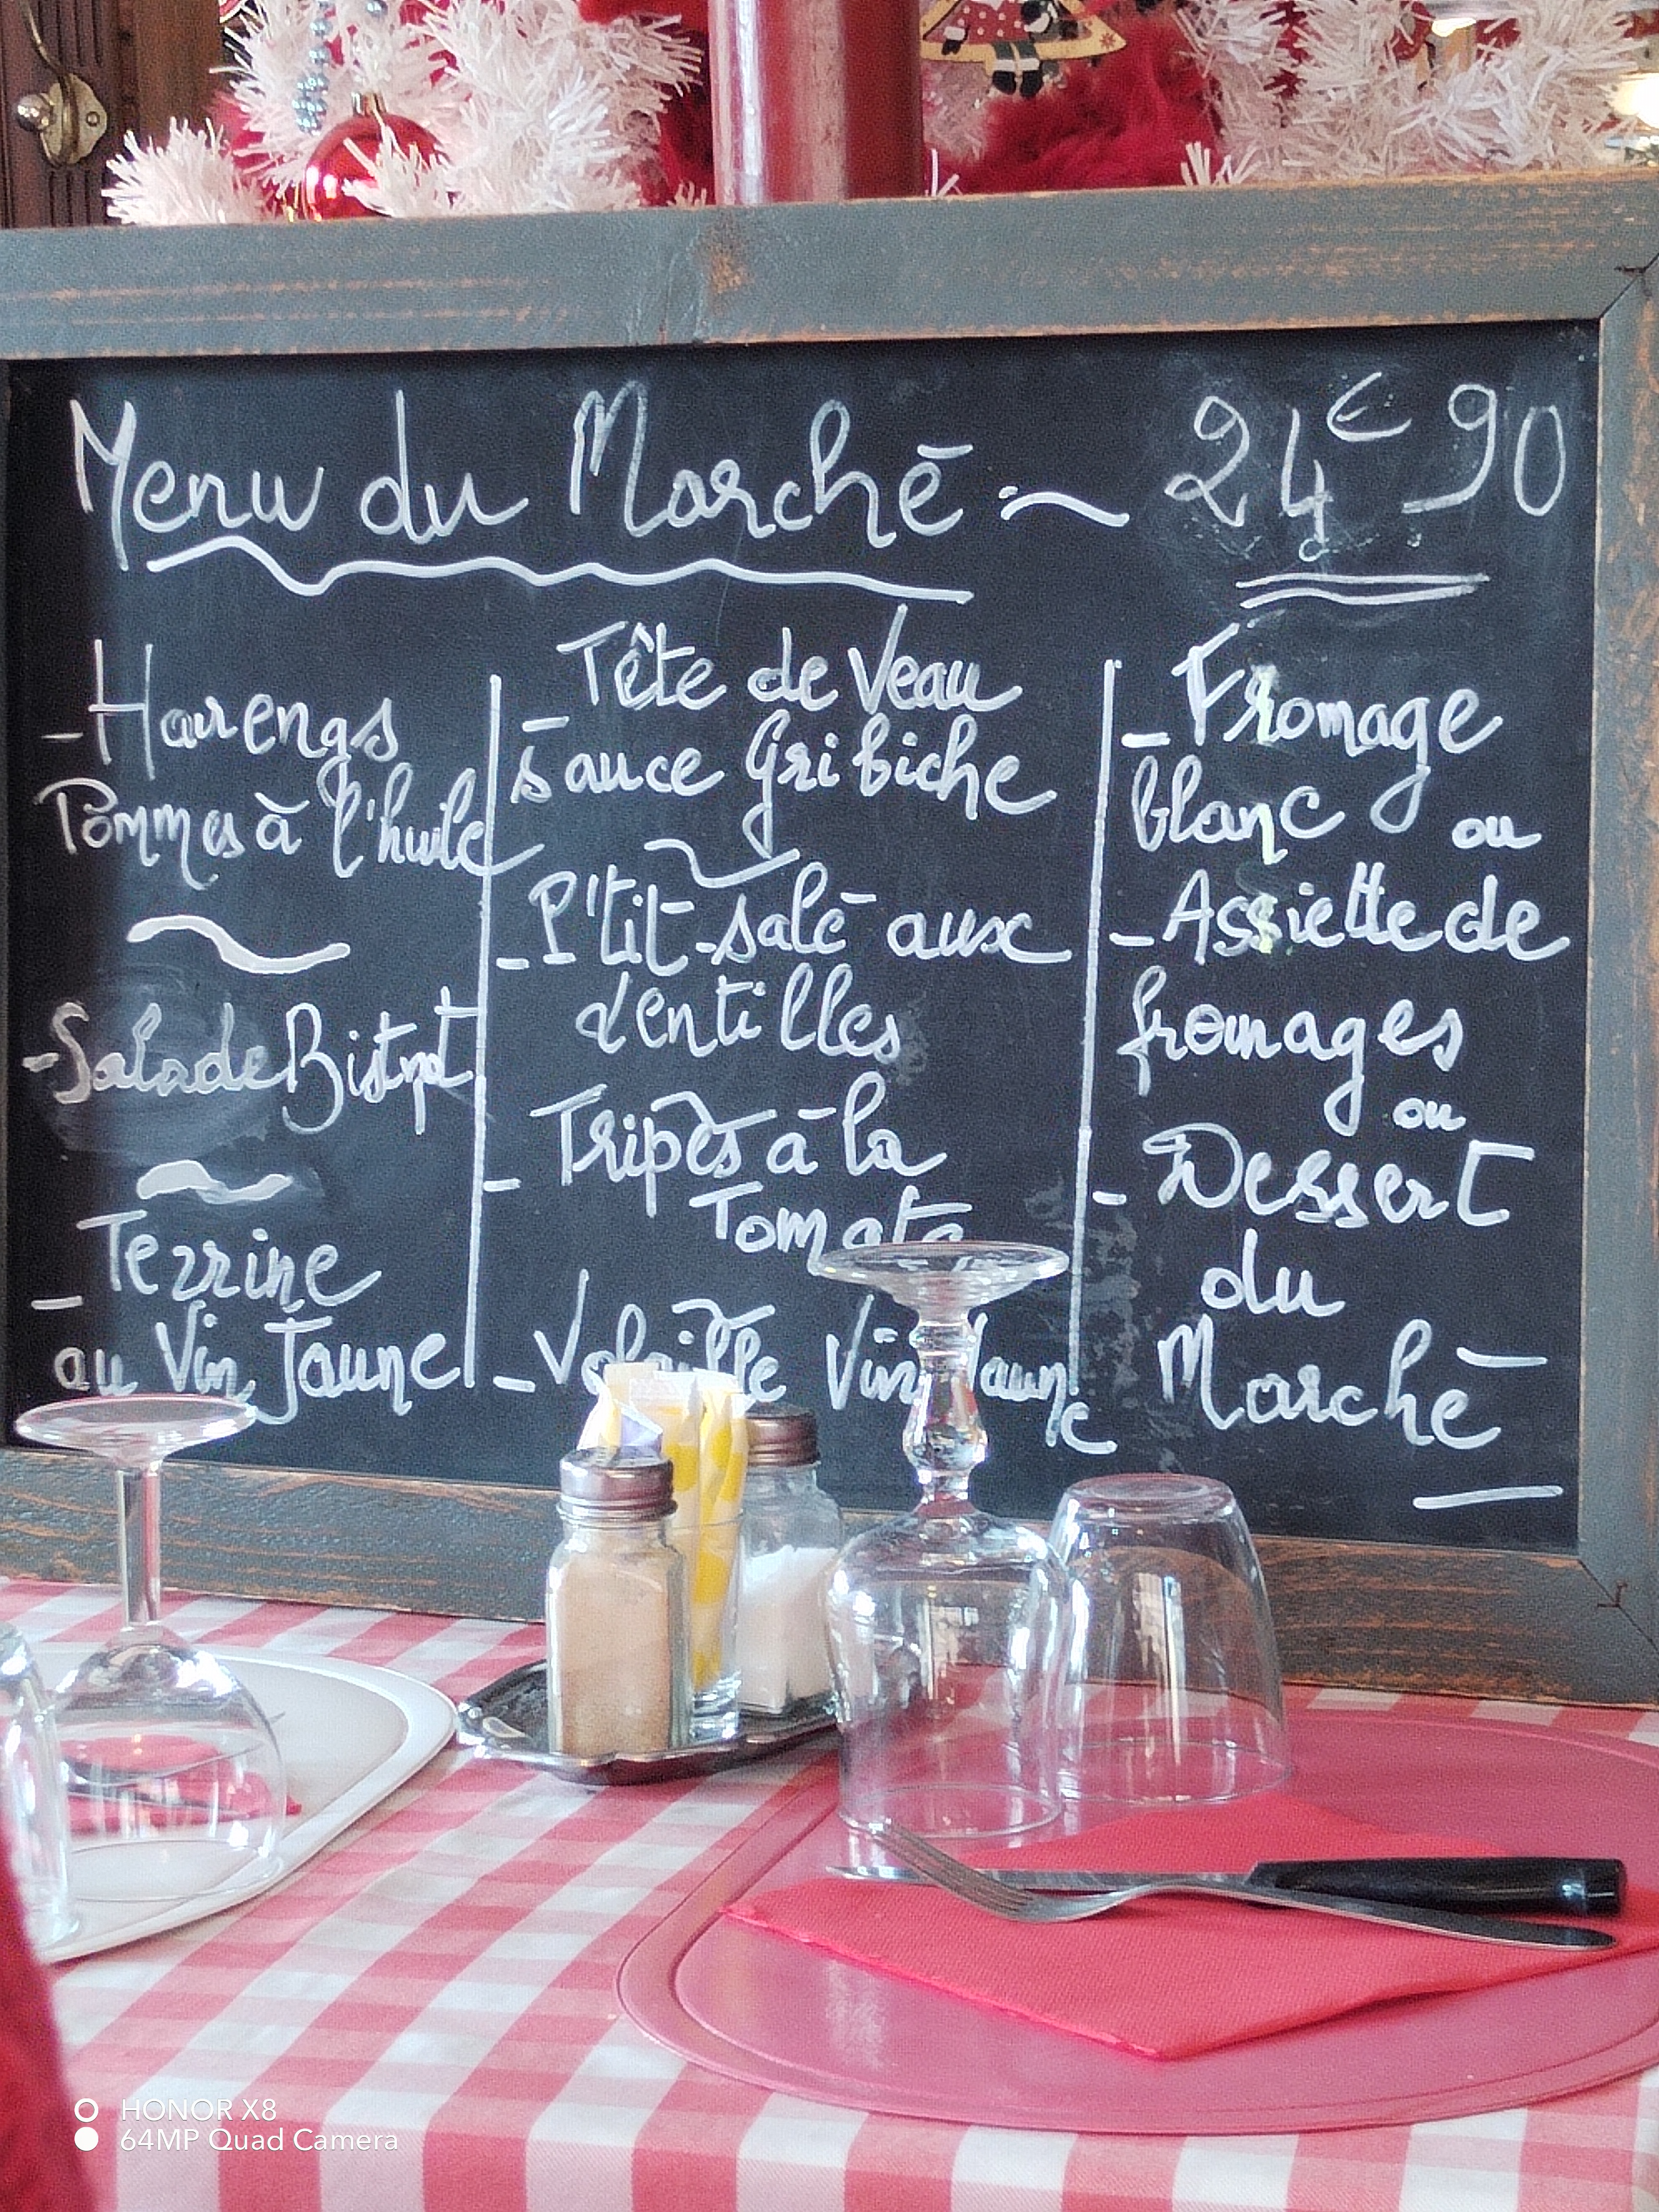 Menu du Marché ~ 24€90
- Harengs
Pommes à l'huile
- Salade Bistrot
Terrine
- au Vin Jaune
Tête de Veau
- sauce Gribiche
- P'tit-salé aux
lentilles
Tripes à la
- Tomate
- Volaille Vin Jaune
- Fromage
blanc ou
- Assiette de
fromages
ou
- Dessert
du
Marché
HONOR X8
64MP Quad Camera